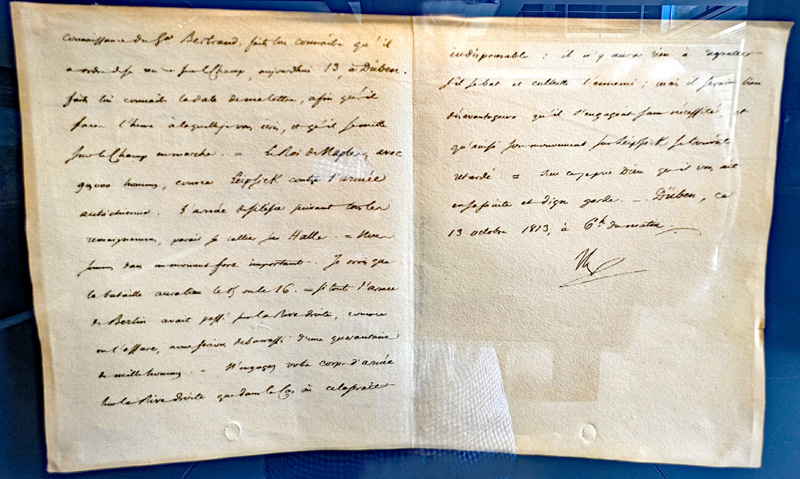 connaissance du Gal Bertrand, faites lui connaître qu'il
a ordre de se sur le Champ, aujourd'hui 13, à Düben.
faites lui connaître la date de ma lettre, afin qu'il
l'heure à laquelle je vous écris, et qu'il se mette
sur le Champ en marche. = Le Roi de Naples, avec
90,000 hommes, couvre Leipsick contre l'armée
autrichienne. L'armée de Silésie suivant tous les
renseignemens, parait se rallier sur Halle. = Nous
sommes dans un moment fort important. Je crois que
la bataille aura lieu le 15 ou le 16. = Si toute l'armée
de Berlin avait passé sur la Rive droite, comme
on l'assure, nous serions débarrassés d'une quarantaine
de mille hommes. = N'engagez votre corps d'armée
sur la Rive droite que dans le Cas où cela serait
indispensable : il n'y aura rien à regretter
s'il se bat et culbute l'ennemi ; mais il serait bien
désavantageux qu'il s'engageât sans nécessité, et
qu'ainsi son mouvement sur Leipsick se trouvât
retardé : = Sur ce je prie Dieu qu'il vous ait
en sa sainte et digne garde. = Düben, ce
13 octobre 1813, à 6h du matin.